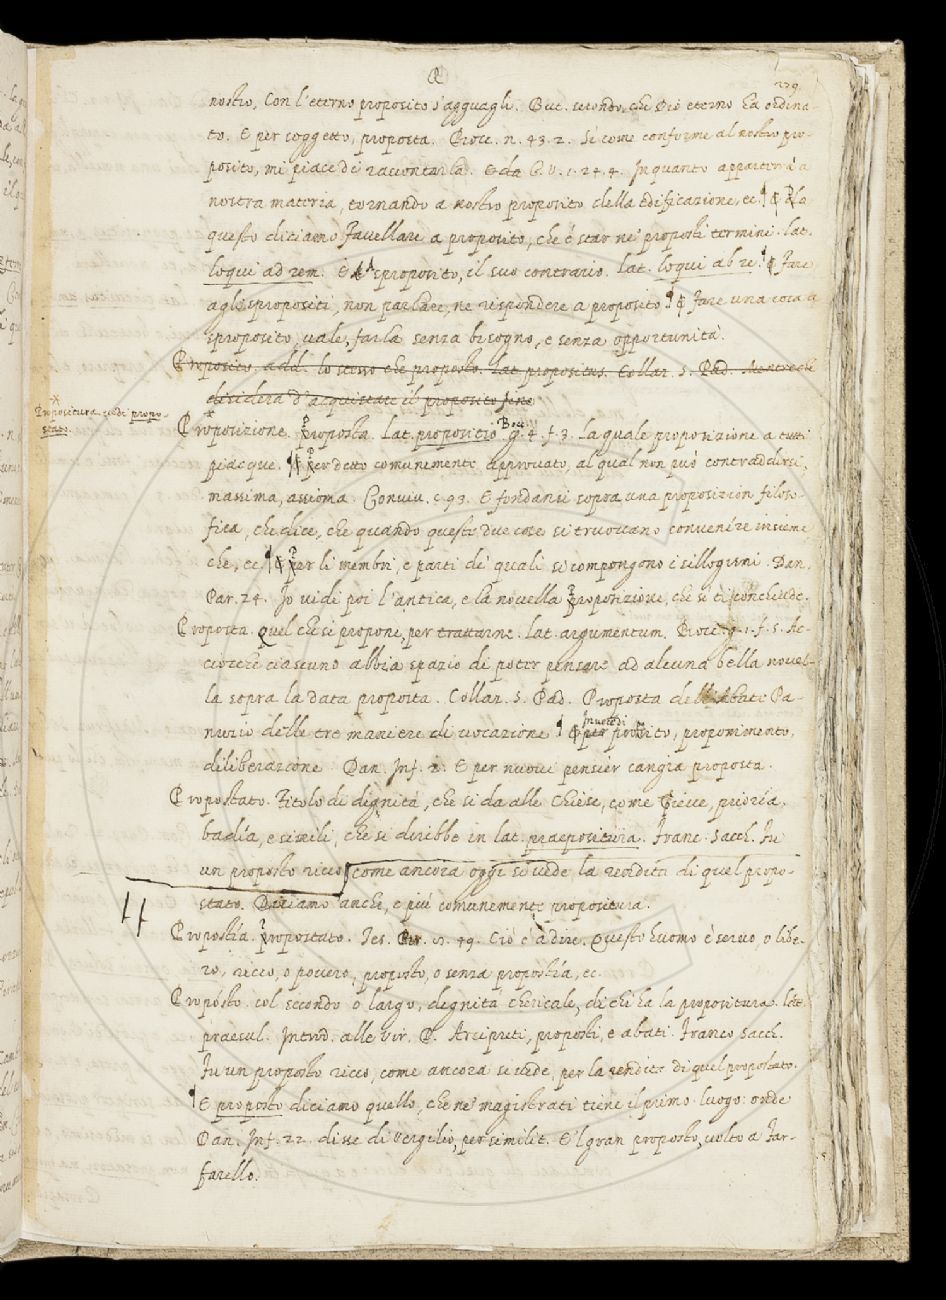 nostro, Con l'eterno proposito s'agguagli. But. secondo, che Dio eterno ha ordina-
to. E per soggetto, proposta. Crosc. n. 43. 2. Sì come conforme al nostro pro-
posito, mi piace di raccontarla. E da C. V. 1. 24. 4. In quanto apparterrà a
nostra materia, tornando a nostro proposito della Edificazione, ec. Da
questo diciamo Favellare a proposito, che è star ne' proposti termini. lat.
loqui ad rem. E sproposito, il suo contrario. Lat. loqui ab re. Fare
agli spropositi, non parlare, ne rispondere a proposito. Fare una cosa a
sproposito, vale, farla senza bisogno, e senza opportunità.
Proposito, add. lo stesso che proposto. Lat. propositus. Collaz. S. Pad. Mentreché
desidera d'acquistare il proposito fine
Propositura vedi propo-
stato.
Proposizione. Proposta. Lat. propositio. Bocc. g. 4. f. 3. La quale proposizione a tutti
piacque. Per detto comunemente approvato, al qual non può contraddirsi,
massima, assioma. Conviv. c. 93. E fondansi sopra una proposizion filoso-
fica, che dice, che quando queste due cose si truovano convenire insieme
che, ec. Per li membri, e parti di quali si compongono i sillogismi. Dan.
Par. 24. Io udi poi l'antica, e la novella Proposizione, che sì ti conchiude.
Proposta. Quel che si propone, per trattarne. lat. argumentum. Bocc. g. 1. f. 5. Ac-
ciocchè ciascuno abbia spazio di poter pensare ad alcuna bella novel-
la sopra la data proposta. Collaz. S. Pad. Proposta dell'Abate Pa-
nuzio delle tre maniere di vocazione In vece di per proposito, proponimento,
diliberazione. Dan. Inf. 2. E per nuovi pensier cangia proposta.
Propostato. Titolo di dignità, che si da alle Chiese, come Pieve, prioria,
badía, e simili, che si direbbe in lat. praepositura. Franc. Sacch. Fu
un proposto ricco, come ancora oggi si vede la rendita di quel propo-
stato. Diciamo anche, e più comunemente propositura.
Propostía. Propostato. Tes. Br. n. 49. Ciò è a dire. Questo huomo è servo, o libe-
ro, ricco, o povero, proposto, o senza propostía, ec.
Propósto. col secondo o largo, dignità chericale, di chi ha la propositura. lat.
praesul. Introd. alle vir. P. Arcipreti, proposti, e abati. Franco Sacch.
Fu un proposto ricco, come ancora si vede, per la rendita di quel propostato.
E proposto diciamo quello, che ne' magistrati tiene il primo luogo: onde
Dan. Inf. 22. disse di Vergilio, per similit. E 'l gran proposto, volto a Far-
farello.